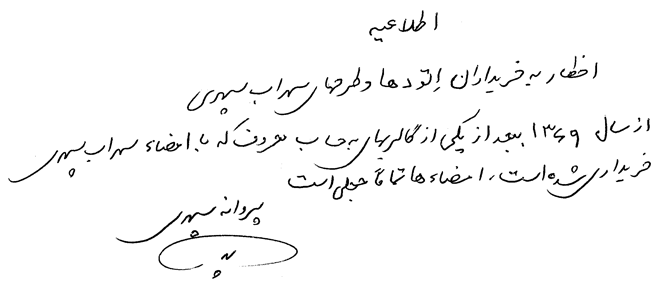 اطلاعیه
اخطار به خریداران اتودها و طرحهای سهراب سپهری
از سال ۱۳۶۹ ببعد از یکی از گالریهای به حساب معروف که با امضاء سهراب سپهری
خریداری شده است، امضاءها تماماً جعلی است
پروانه سپهری